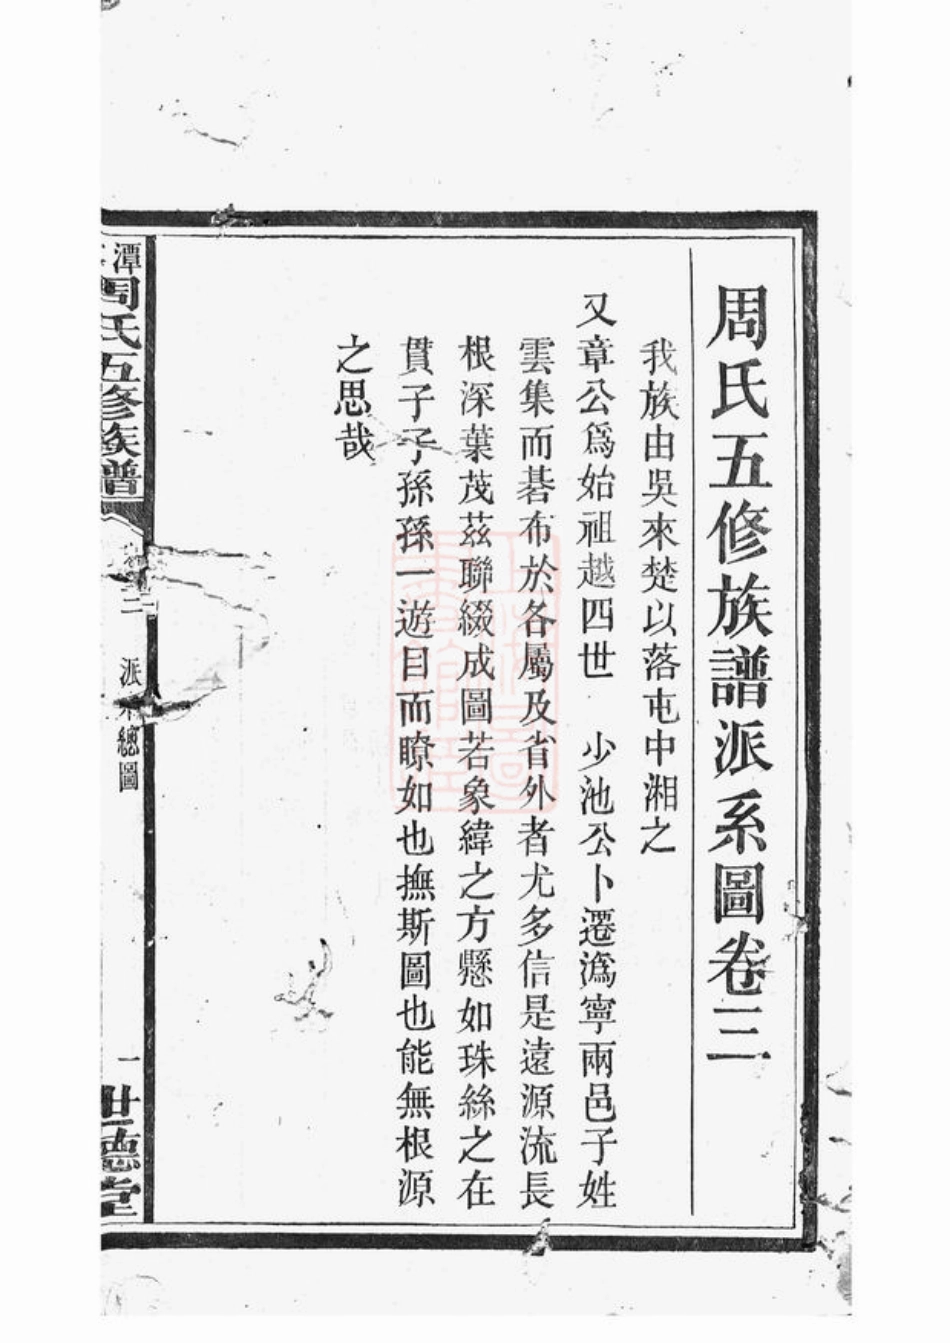 周氏五修族譜派系圖卷三
我族由吳來楚以落屯中湘之
又章公爲始祖越四世　少池公卜遷潙寧兩邑子姓
雲集而碁布於各屬及省外者尤多信是遠源流長
根深葉茂茲聯綴成圖若象緯之方懸如珠絲之在
貫子子孫孫一遊目而瞭如也撫斯圖也能無根源
之思哉
潭
周氏五修族譜
三
派系總圖
一
世德堂